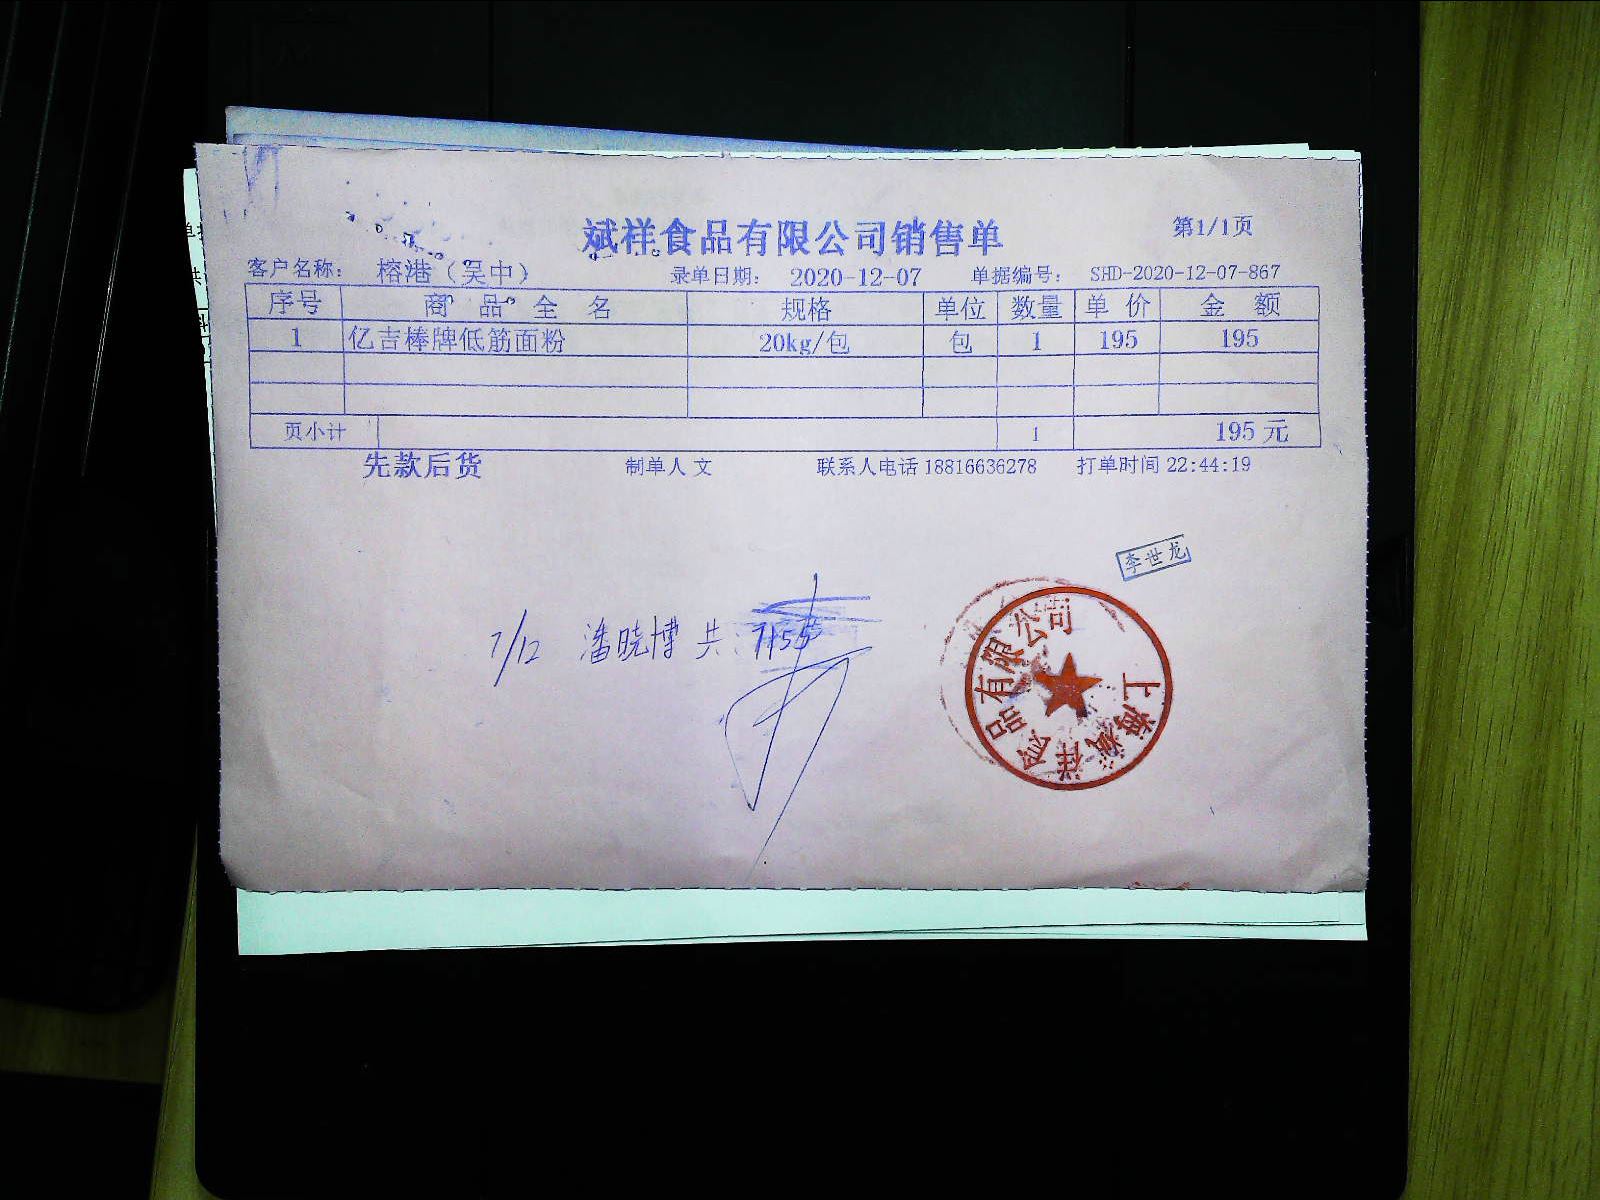 斌祥食品有限公司销售单
第1/1页
客户名称： 榕港（吴中） 录单日期： 2020-12-07 单据编号： SHD-2020-12-07-867
序号 商品全名 规格 单位 数量 单价 金额
1 亿吉棒牌低筋面粉 20kg/包 包 1 195 195
页小计 1 195 元
先款后货 制单人 文 联系人电话 18816636278 打单时间 22:44:19
李世龙
7/12 潘晓博 共：7155
上海斌祥食品有限公司